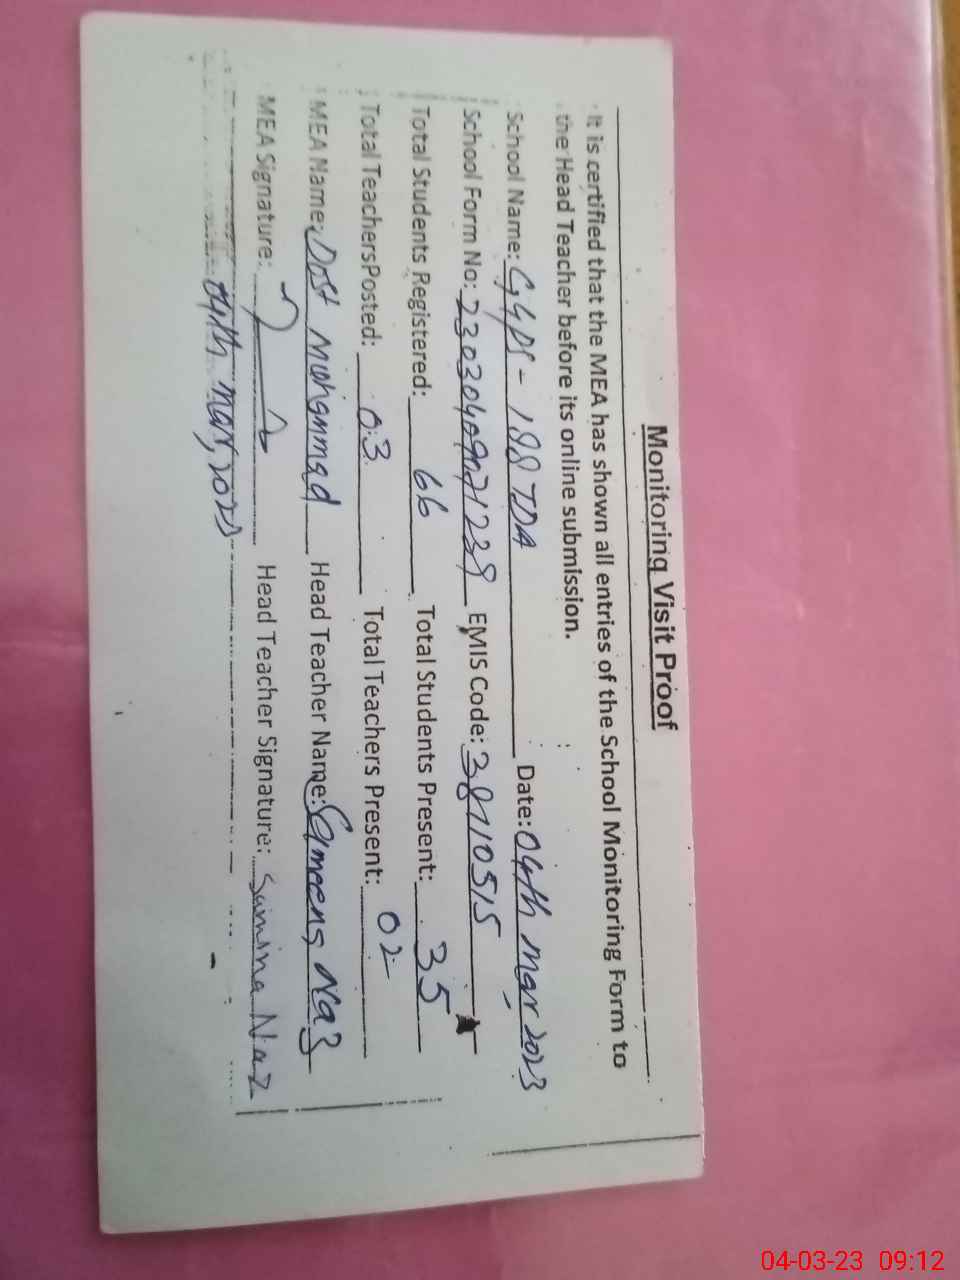 Monitoring Visit Proof
It is certified that the MEA has shown all entries of the School Monitoring Form to
the Head Teacher before its online submission.
School Name: GGPS - 188 TDA Date: 04th Mar, 2023
School Form No: EMIS Code: 38710515
Total Students Registered: 66 Total Students Present: 35
Total TeachersPosted: 03 Total Teachers Present: 02
MEA Name: Dost Muhammad Head Teacher Name: Sameena Naz
MEA Signature: Head Teacher Signature: Samina Naz
04th Mar, 2023
04-03-23 09:12